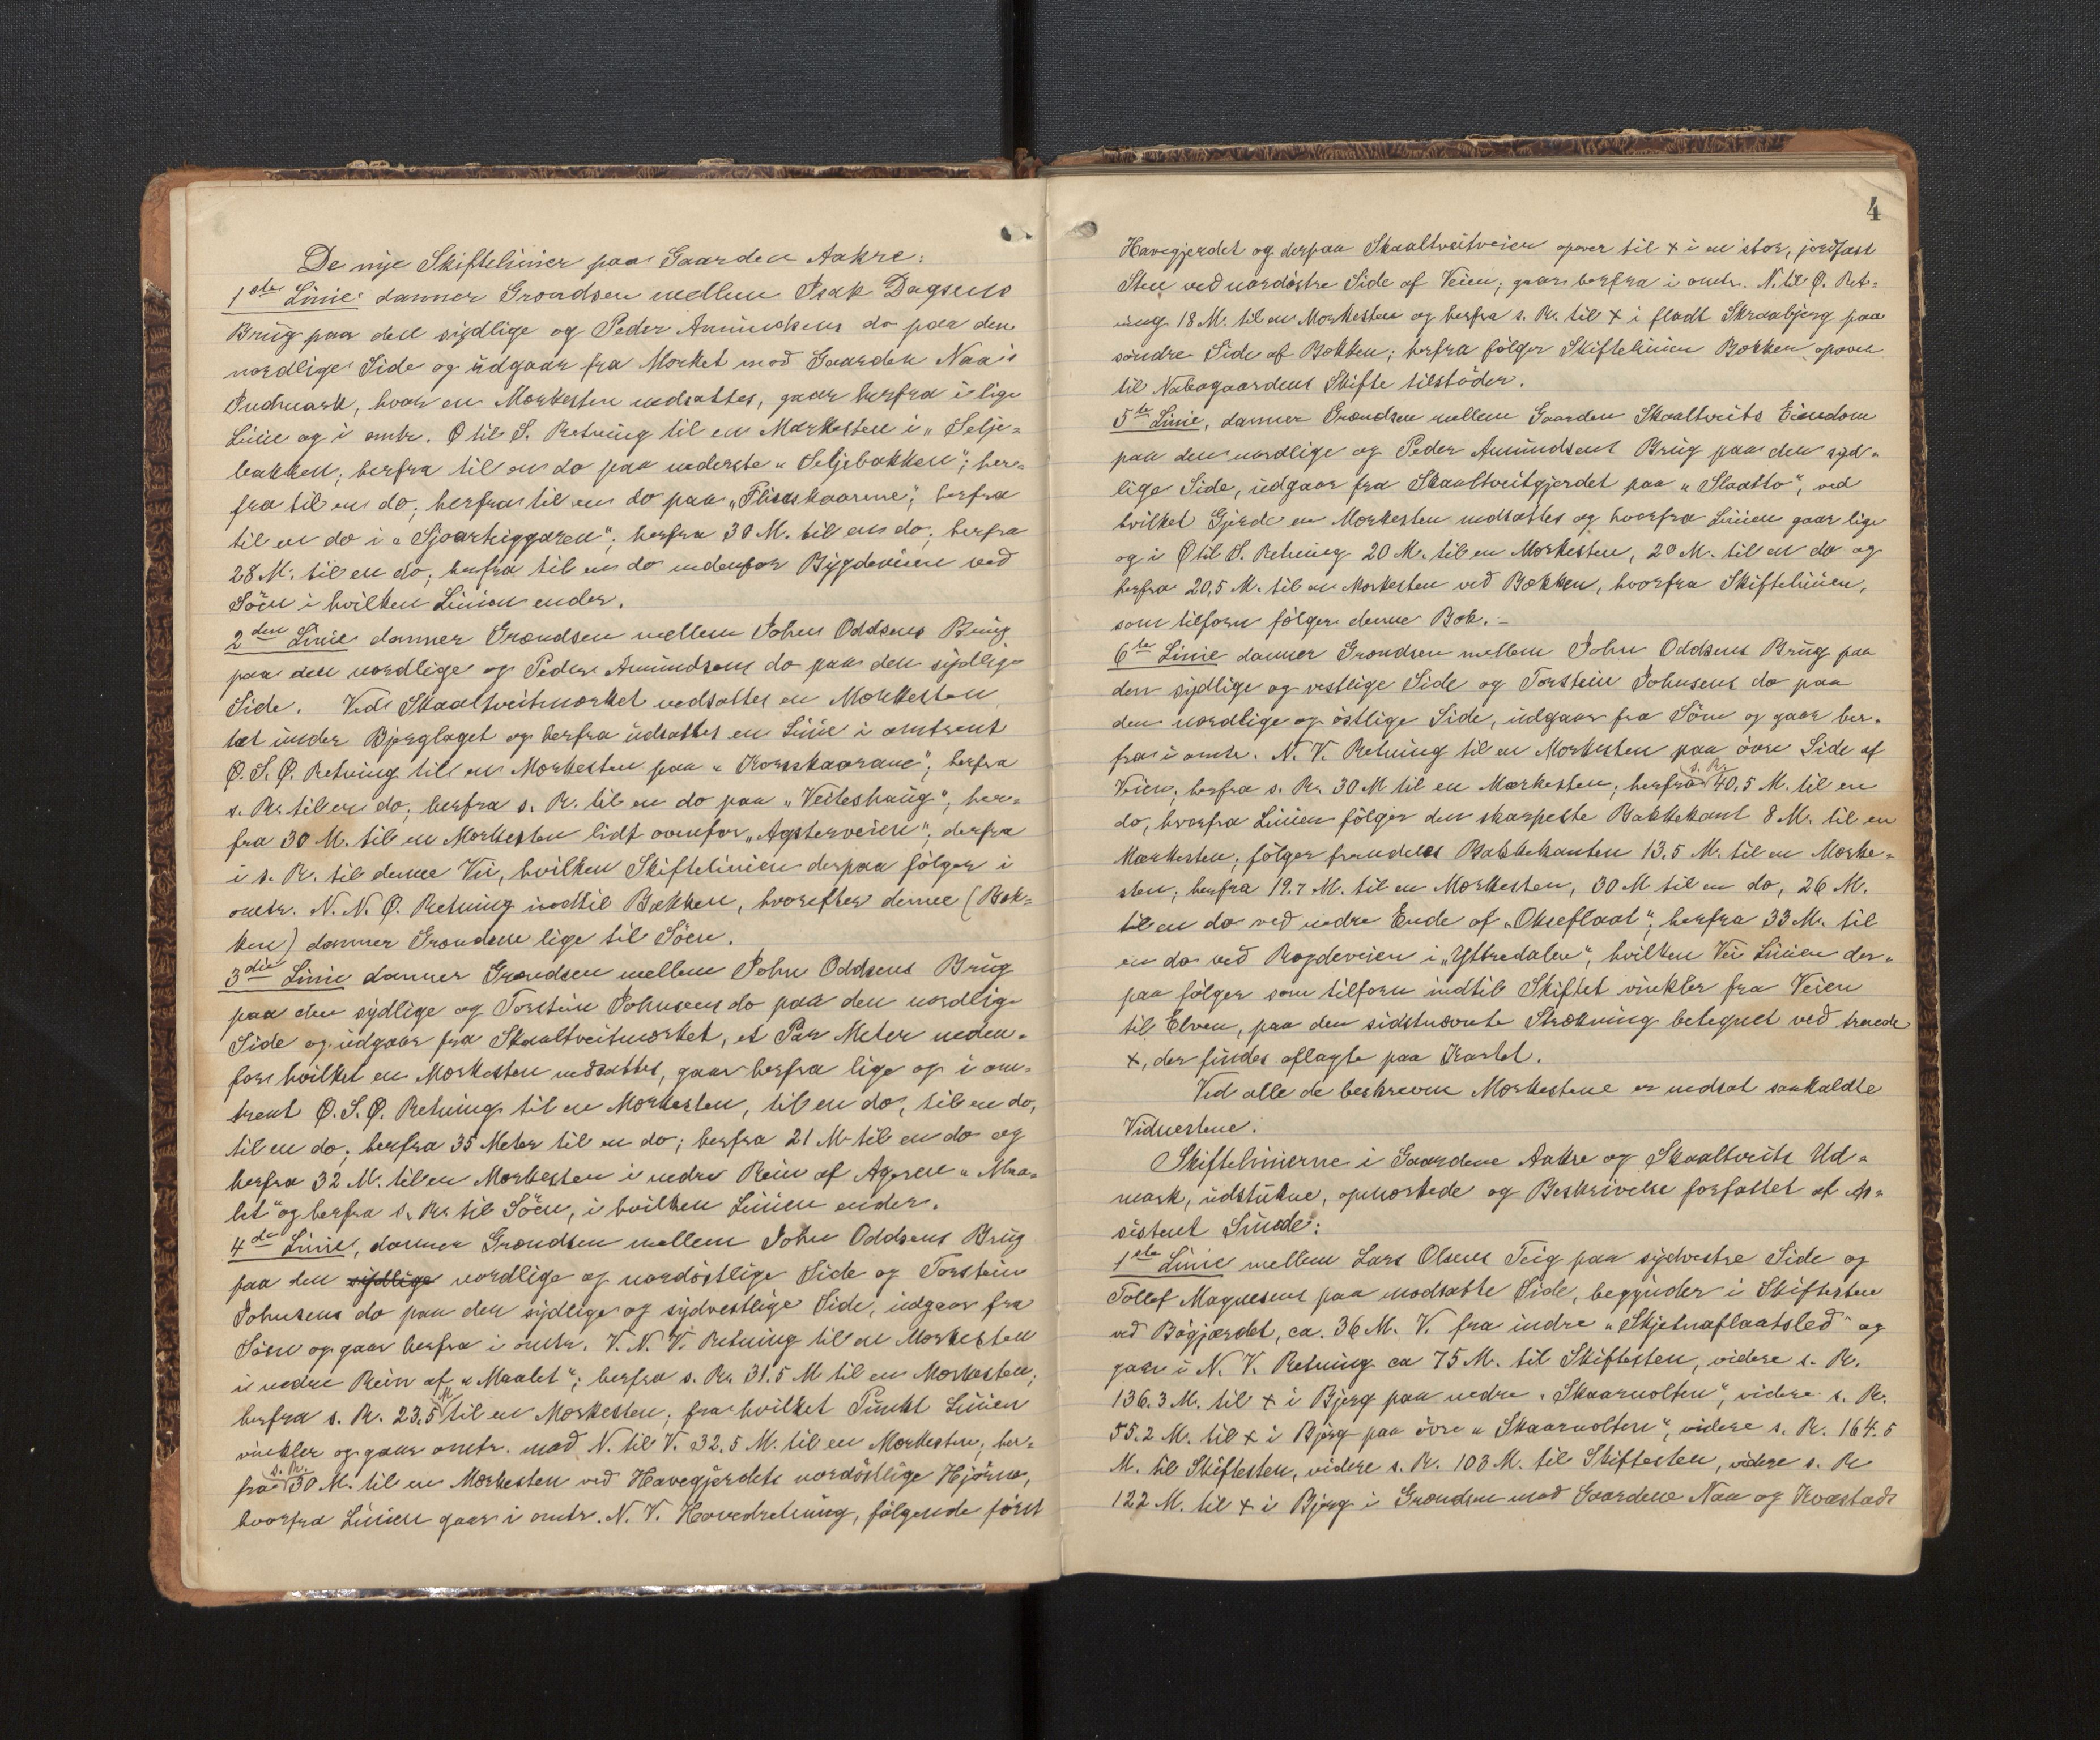 De nye Skiftelinier paa Gaarden Aakre:
1ste Linie danner Grændsen mellem Isak Dagsens
Brug paa den sydlige og Peder Amundsens do paa den
nordlige Side og udgaar fra Mærket mod Gaarden Naa's
Indmark, hvor en Mærkesten nedsattes, gaar herfra i lige
Linie og i omtr. Ø til S. Retning til en Mærkesten i „Selje-
bakken; herfra til en do paa nederste „Seljebakken"; her-
fra til en do; herfra til en do paa „Flisaskaarene"; herfra
til en do i „Sjoarhiggaren"; herfra 30 M. til en do; herfra
28 M. til en do; herfra til en do nedenfor Bygdeveien ved
Söen i hvilken Linien ender.
2den Linie danner Grændsen mellem John Oddsens Brug
paa den nordlige og Peder Amundsens do paa den sydlige
Side. Ved Skaaltveitmærket nedsattes en Mærkesten
tæt under Bjerglaget og herfra udsattes en Linie i omtrent
Ø. S. Ø. Retning til en Mærkesten paa „Korsskaarane"; herfra
s. R. til en do; herfra s. R. til en do paa „Veiteshaug"; her-
fra 30 M. til en Mærkesten lidt ovenfor „Agsterveien"; derfra
i s. R. til denne Vei, hvilken Skiftelinien derpaa følger i
omtr. N. N. Ø. Retning indtil Bækken, hvorefter denne (Bæk-
ken) danner Grændsen lige til Söen.
3die Linie danner Grændsen mellem John Oddsens Brug
paa den sydlige og Torstein Johnsens do paa den nordlige
Side og udgaar fra Skaaltveitmærket, et Par Meter neden-
for hvilket en Mærkesten nedsattes, gaar herfra lige og i om-
trent Ø. S. Ø. Retning til en Mærkesten, til en do, til en do,
til en do; herfra 35 Meter til en do; herfra 21 M. til en do og
herfra 32 M. til en Mærkesten i nedre Rein af Ageren „Maa-
let" og herfra s. R. til Söen, i hvilken Linien ender.
4de Linie, danner Grændsen mellem John Oddsens Brug
paa den sydlige nordlige og nordöstlige Side og Torstein
Johnsens do paa den sydlige og sydvestlige Side, udgaar fra
Söen og gaar herfra i omtr. V. N. V. Retning til en Mærkesten
i nedre Rein af „Maalet"; herfra s. R. 31.5 M til en Mærkesten;
herfra s. R. 23,5 M til en Mærkesten; fra hvilket Punkt Linien
vinkler og gaar omtr. mod N. til V. 32,5 M. til en Mærkesten, her-
fra s. R. 30 M. til en Mærkesten ved Havegjærdets nordöstlige Hjörne,
hvorfra Linien gaar i omtr. N. V. Hovedretning, fölgende först
4
Havegjerdet og derpaa Skaaltveitveien opover til x i en stor, jordfast
Sten ved nordöstre Side af Veien; gaar herfra i omtr. N. til Ø. Ret-
ning 18 M. til en Mærkesten og herfra s. R. til x i fladt Skraabjerg paa
söndre Side af Bækken; herfra fölger Skiftelinien Bækken opover
til Nabogaardens Skifte tilstöder.
5te Linie, danner Grændsen mellem Gaarden Skaaltveits Eiendom
paa den nordlige og Peder Amundsens Brug paa den syd-
lige Side, udgaar fra Skaaltveitgjerdet paa „Slaatto", ved
hvilket Gjerde en Mærkesten nedsattes og hvorfra Linien gaar lige
og i Ø til S. Retning 20 M. til en Mærkesten, 20 M. til en do og
herfra 20,5 M. til en Mærkesten ved Bækken, hvorfra Skiftelinien,
som tilforn fölger denne Bæk.-
6te Linie danner Grændsen mellem John Oddsens Brug paa
den sydlige og vestlige Side og Torstein Johnsens do paa
den nordlige og östlige Side, udgaar fra Söen og gaar her-
fra i omtr. N. V. Retning til en Mærkesten paa övre Side af
Veien, herfra s. R. 30 M til en Mærkesten; herfra s. R. 40,5 M. til en
do, hvorfra Linien fölger den skarpeste Bakkekant 8 M. til en
Mærkesten; fölger fremdeles Bakkekanten 13.5 M. til en Mærke-
sten; herfra 19.7 M. til en Mærkesten, 30 M til en do, 26 M.
til en do ved nedre Ende af „Okseflaat"; herfra 33 M. til
en do ved Rogdeveien i „Yttredalen", hvilken Vei Linien der-
paa fölger som tilforn indtil Skiftet vinkler fra Veien
til Elven, paa den sidstnævnte Strækning betegnet ved trende
x, der findes aflagte paa Kartet.
Ved alle de beskrevne Mærkestene er nedsat saakaldte
Vidnestene.
Skiftelinierne i Gaardene Aakre og Skaaltveits Ud-
mark, udstukne, opmærkede og Beskrivelse forfattet af As-
sistent Sunde:
1ste Linie mellem Lars Olsens Teig paa sydvestre Side og
Tollef Magnesens paa modsatte Side, begynder i Skiftesten
ved Bögjærdet, ca. 36 M. V. fra indre „Skjetnaflaatsled" og
gaar i N. V. Retning ca 75 M. til Skiftesten, videre s. R.
136.3 M. til x i Bjerg paa nedre „Skaarnolten", videre s. R.
55.2 M. til x i Bjerg paa övre „Skaarnolten", videre s. R. 164.5
M. til Skiftesten, videre s. R. 103 M. til Skiftesten, videre s. R
122 M. til x i Bjerg i Grændsen mod Gaardene Naa og Kvæstad